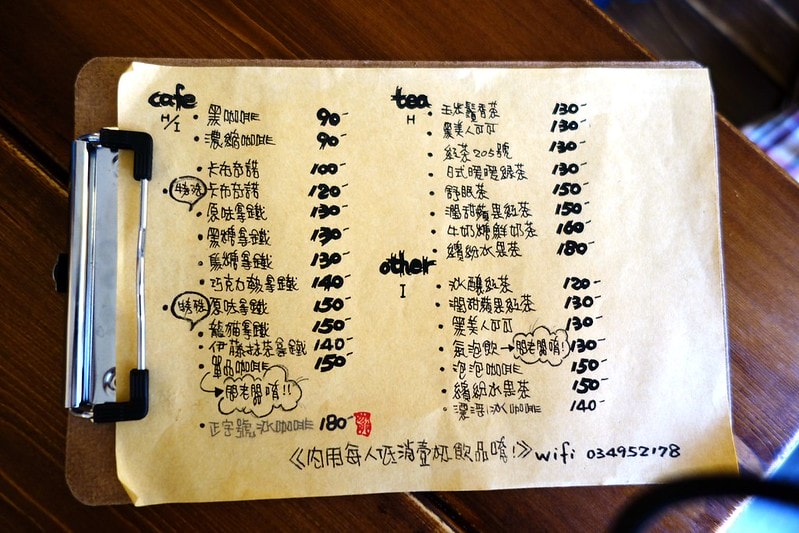 cafe
H/I
黑咖啡 90
濃縮咖啡 90
卡布奇諾 100
特殊 卡布奇諾 120
原味拿鐵 130
黑糖拿鐵 130
焦糖拿鐵 130
巧克力拿鐵 140
特殊 原味拿鐵 150
熊貓拿鐵 150
伊藤抹茶拿鐵 140
單品咖啡 150
問老闆唷!!
正字號冰咖啡 180
tea
H
玉米鬚香茶 130
黑美人可可 130
紅茶205號 130
日式暖暖綠茶 130
舒眠茶 150
潤甜蘋果紅茶 150
牛奶糖鮮奶茶 160
繽紛水果茶 180
other
I
冰釀紅茶 120
潤甜蘋果紅茶 130
黑美人可可 130
氣泡飲→問老闆唷! 130
泡泡咖啡 150
繽紛水果茶 150
漂浮冰咖啡 140
《內用每人低消壹杯飲品唷!》wifi 034952178